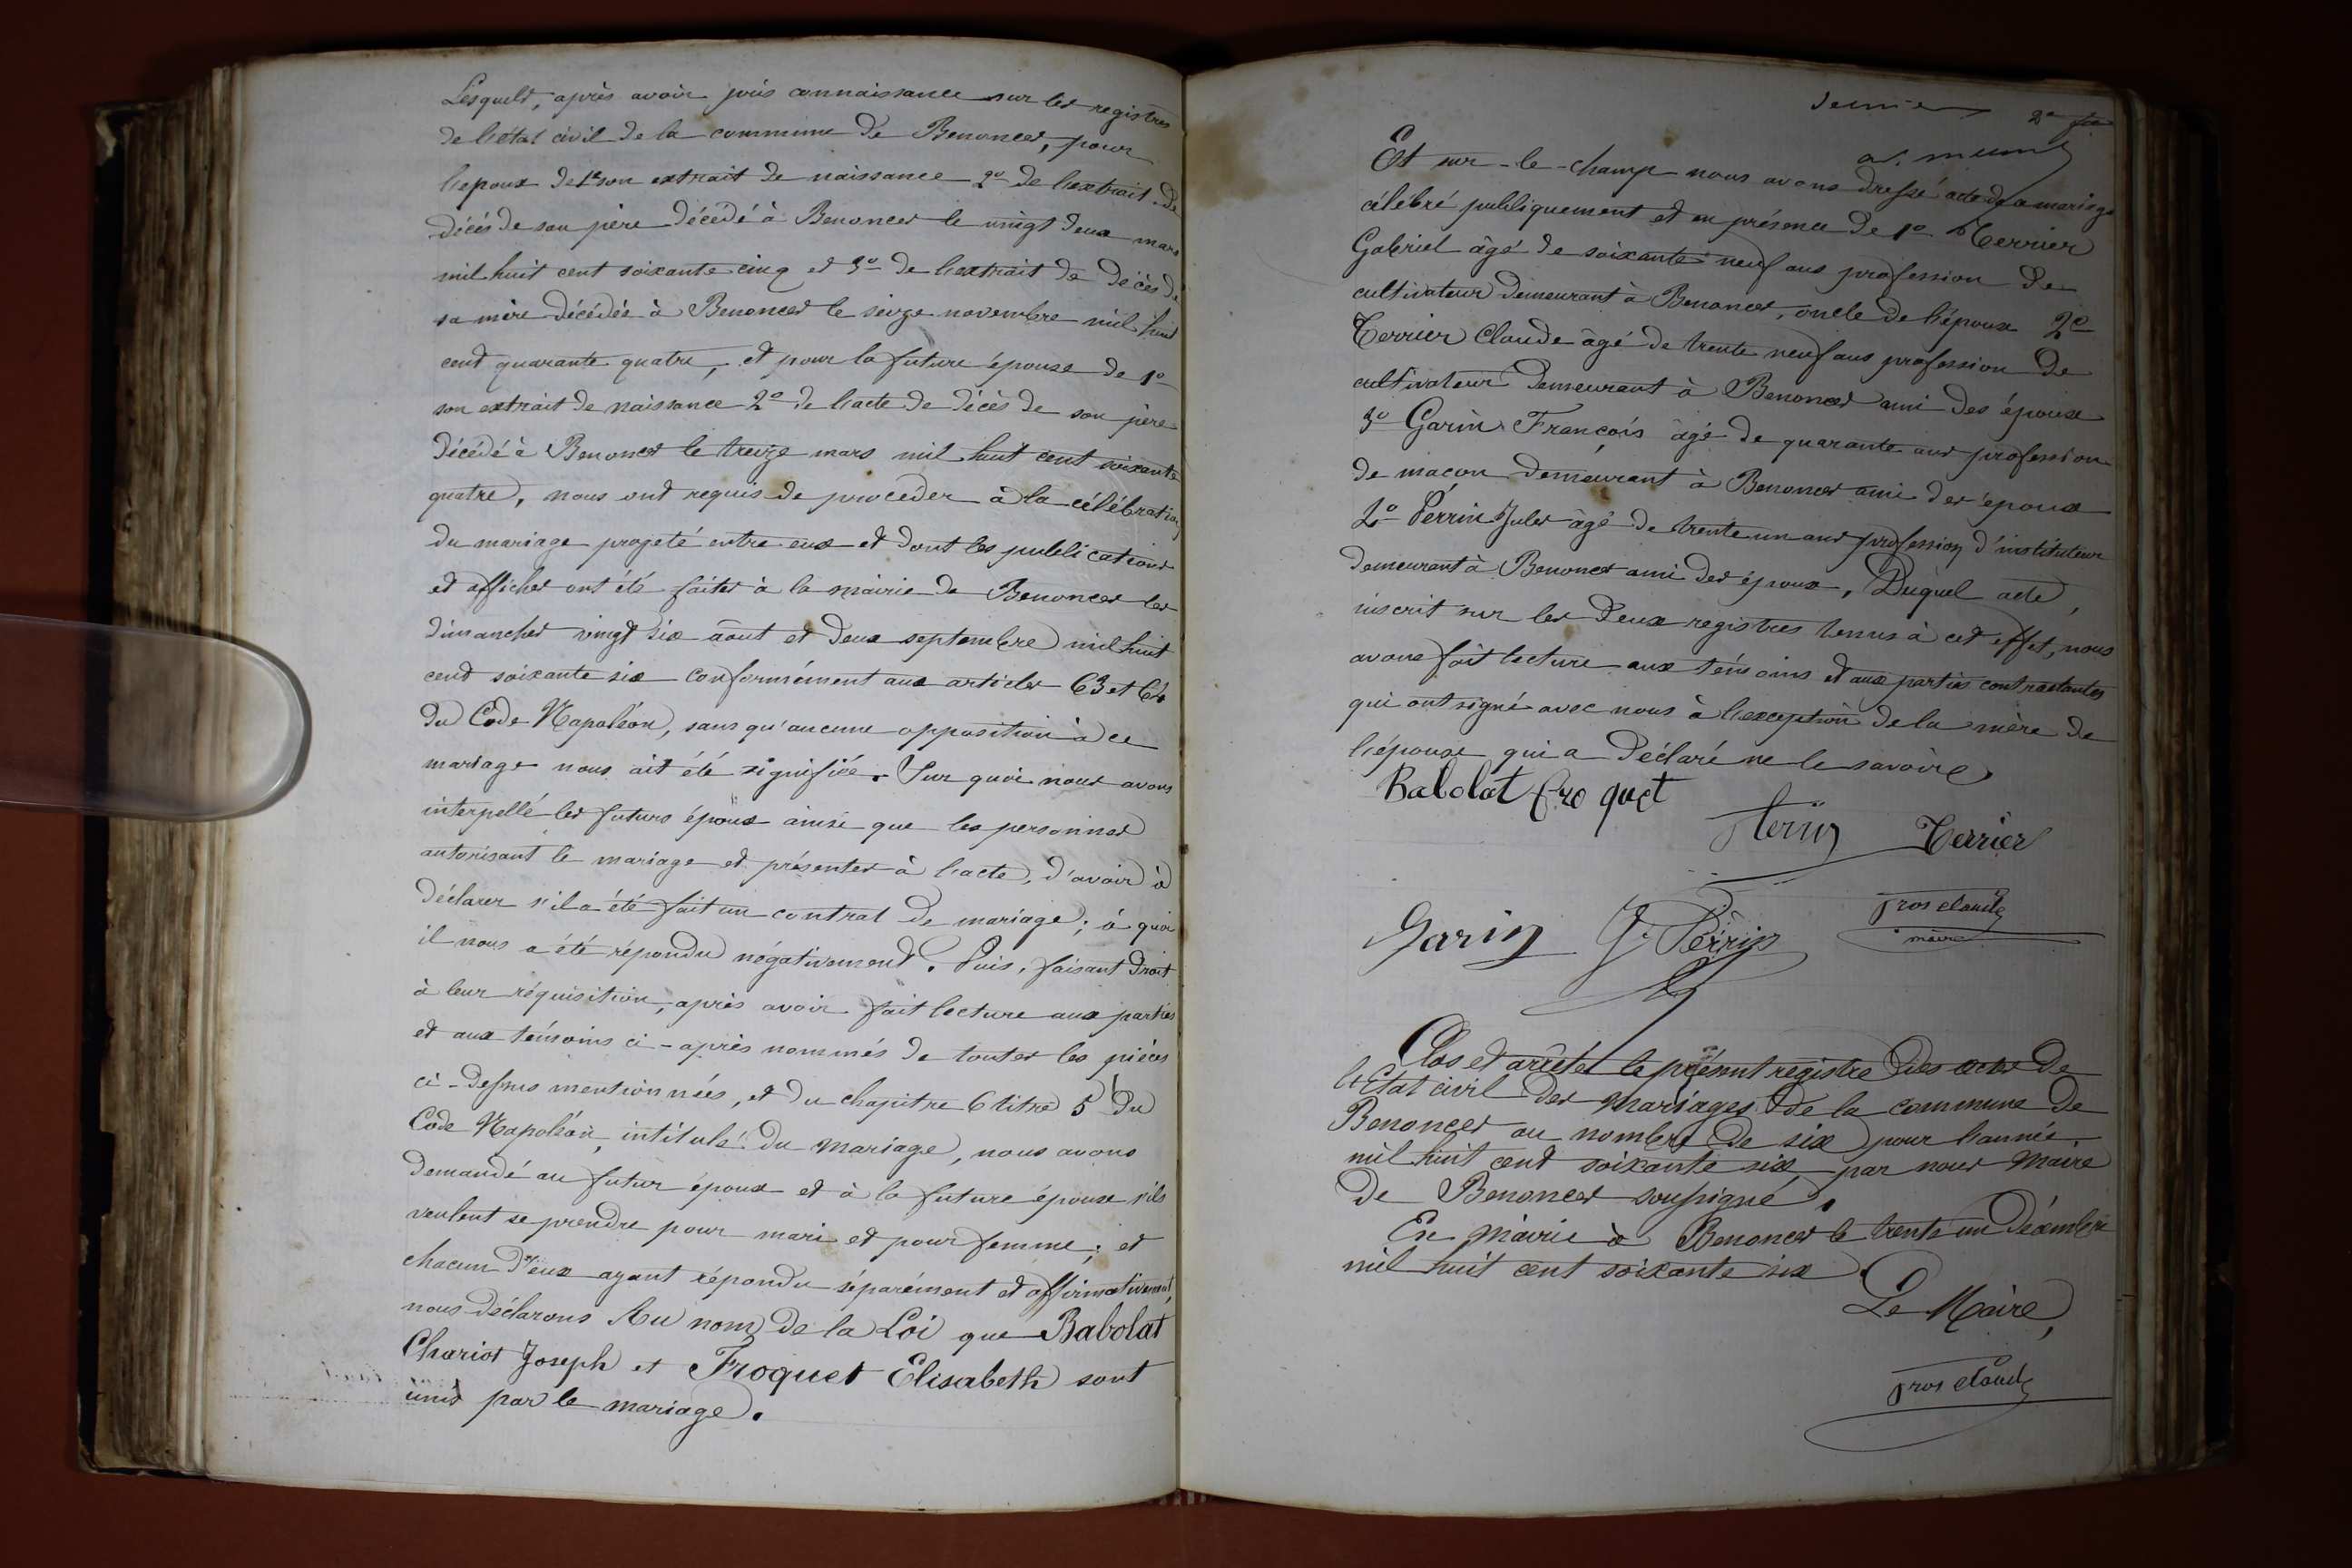 Lesquels, après avoir pris connaissance sur les registres
de l'état civil de la commune de Benonces, pour
l'époux de 1º son extrait de naissance 2º de l'extrait de
décès de son père décédé à Benonces le vingt deux mars
mil huit cent soixante cinq et 3º de l'extrait de décès de
sa mère décédée à Benonces le seize novembre mil huit
cent quarante quatre, et pour la future épouse de 1º
son extrait de naissance 2º de l'acte de décès de son père
décédé à Benonces le treize mars mil huit cent soixante
quatre, nous ont requis de procéder à la célébration
du mariage projeté entre eux et dont les publications
et affiches ont été faites à la mairie de Benonces les
dimanches vingt six août et deux septembre mil huit
cent soixante six conformément aux articles 63 et 64
du Code Napoléon, sans qu'aucune opposition à ce
mariage nous ait été signifiée. Sur quoi nous avons
interpellé les futurs époux ainsi que les personnes
autorisant le mariage et présentes à l'acte, d'avoir à
déclarer s'il a été fait un contrat de mariage; à quoi
il nous a été répondu négativement. Puis, faisant droit
à leur réquisition, après avoir fait lecture aux parties
et aux témoins ci-après nommés de toutes les pièces
ci-dessus mentionnées, et du chapitre 6 titre 5 du
Code Napoléon, intitulé du mariage, nous avons
demandé au futur époux et à la future épouse s'ils
veulent se prendre pour mari et pour femme; et
chacun d'eux ayant répondu séparément et affirmativement,
nous déclarons Au nom de la Loi que Babolat
Chariot Joseph et Froquet Elisabeth sont
unis par le mariage.
2e
Et sur-le-champ nous avons dressé acte de ce mariage
célébré publiquement et en présence de 1º Terrier
Gabriel âgé de soixante neuf ans profession de
cultivateur demeurant à Benonces, oncle de l'époux 2º
Terrier Claude âgé de trente neuf ans profession de
cultivateur demeurant à Benonces ami des époux
3º Garin François âgé de quarante ans profession
de maçon demeurant à Benonces ami des époux
4º Perrin Jules âgé de trente un ans profession d'instituteur
demeurant à Benonces ami des époux, Duquel acte,
inscrit sur les deux registres tenus à cet effet, nous
avons fait lecture aux témoins et aux parties contractantes
qui ont signé avec nous à l'exception de la mère de
l'épouse qui a déclaré ne le savoir
Babolat fro quet
Terrier
Garin J. Perrin gros claude
maire
Clos et arrêté le présent registre des actes de
l'Etat civil des mariages de la commune de
Benonces au nombre de six pour l'année
mil huit cent soixante six, par nous Maire
de Benonces soussigné.
En Mairie à Benonces le trente un décembre
mil huit cent soixante six.
Le Maire,
gros claude